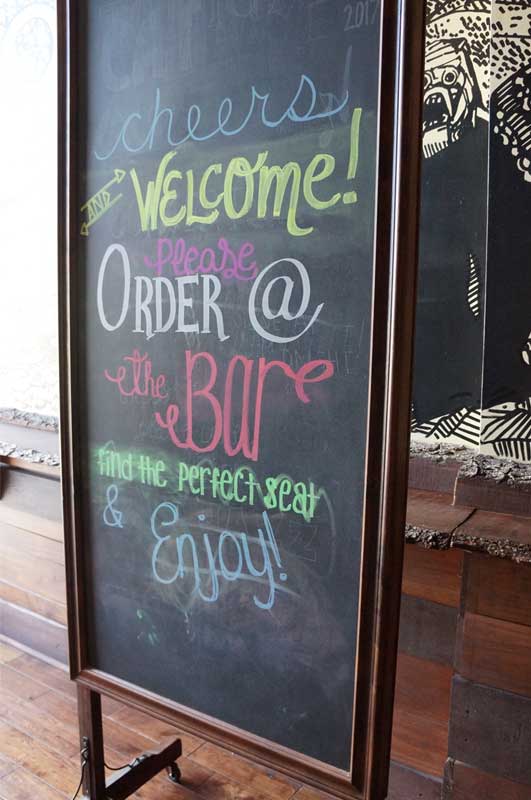 2017
cheers!
AND WELCOME!
Please
ORDER @
the Bar
find the perfect seat
& Enjoy!